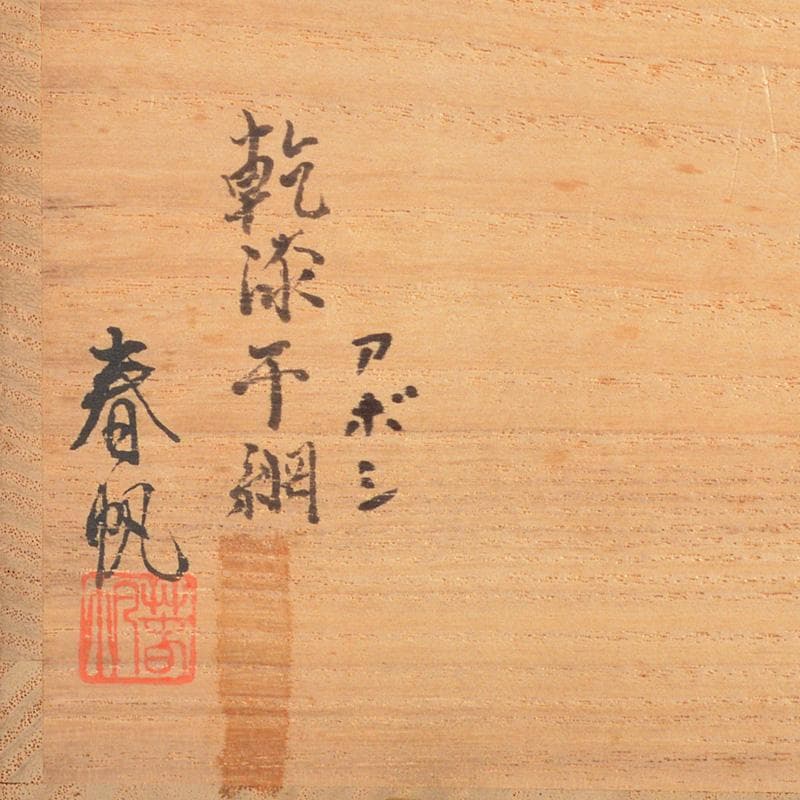 アボシ
乾漆干網
春帆